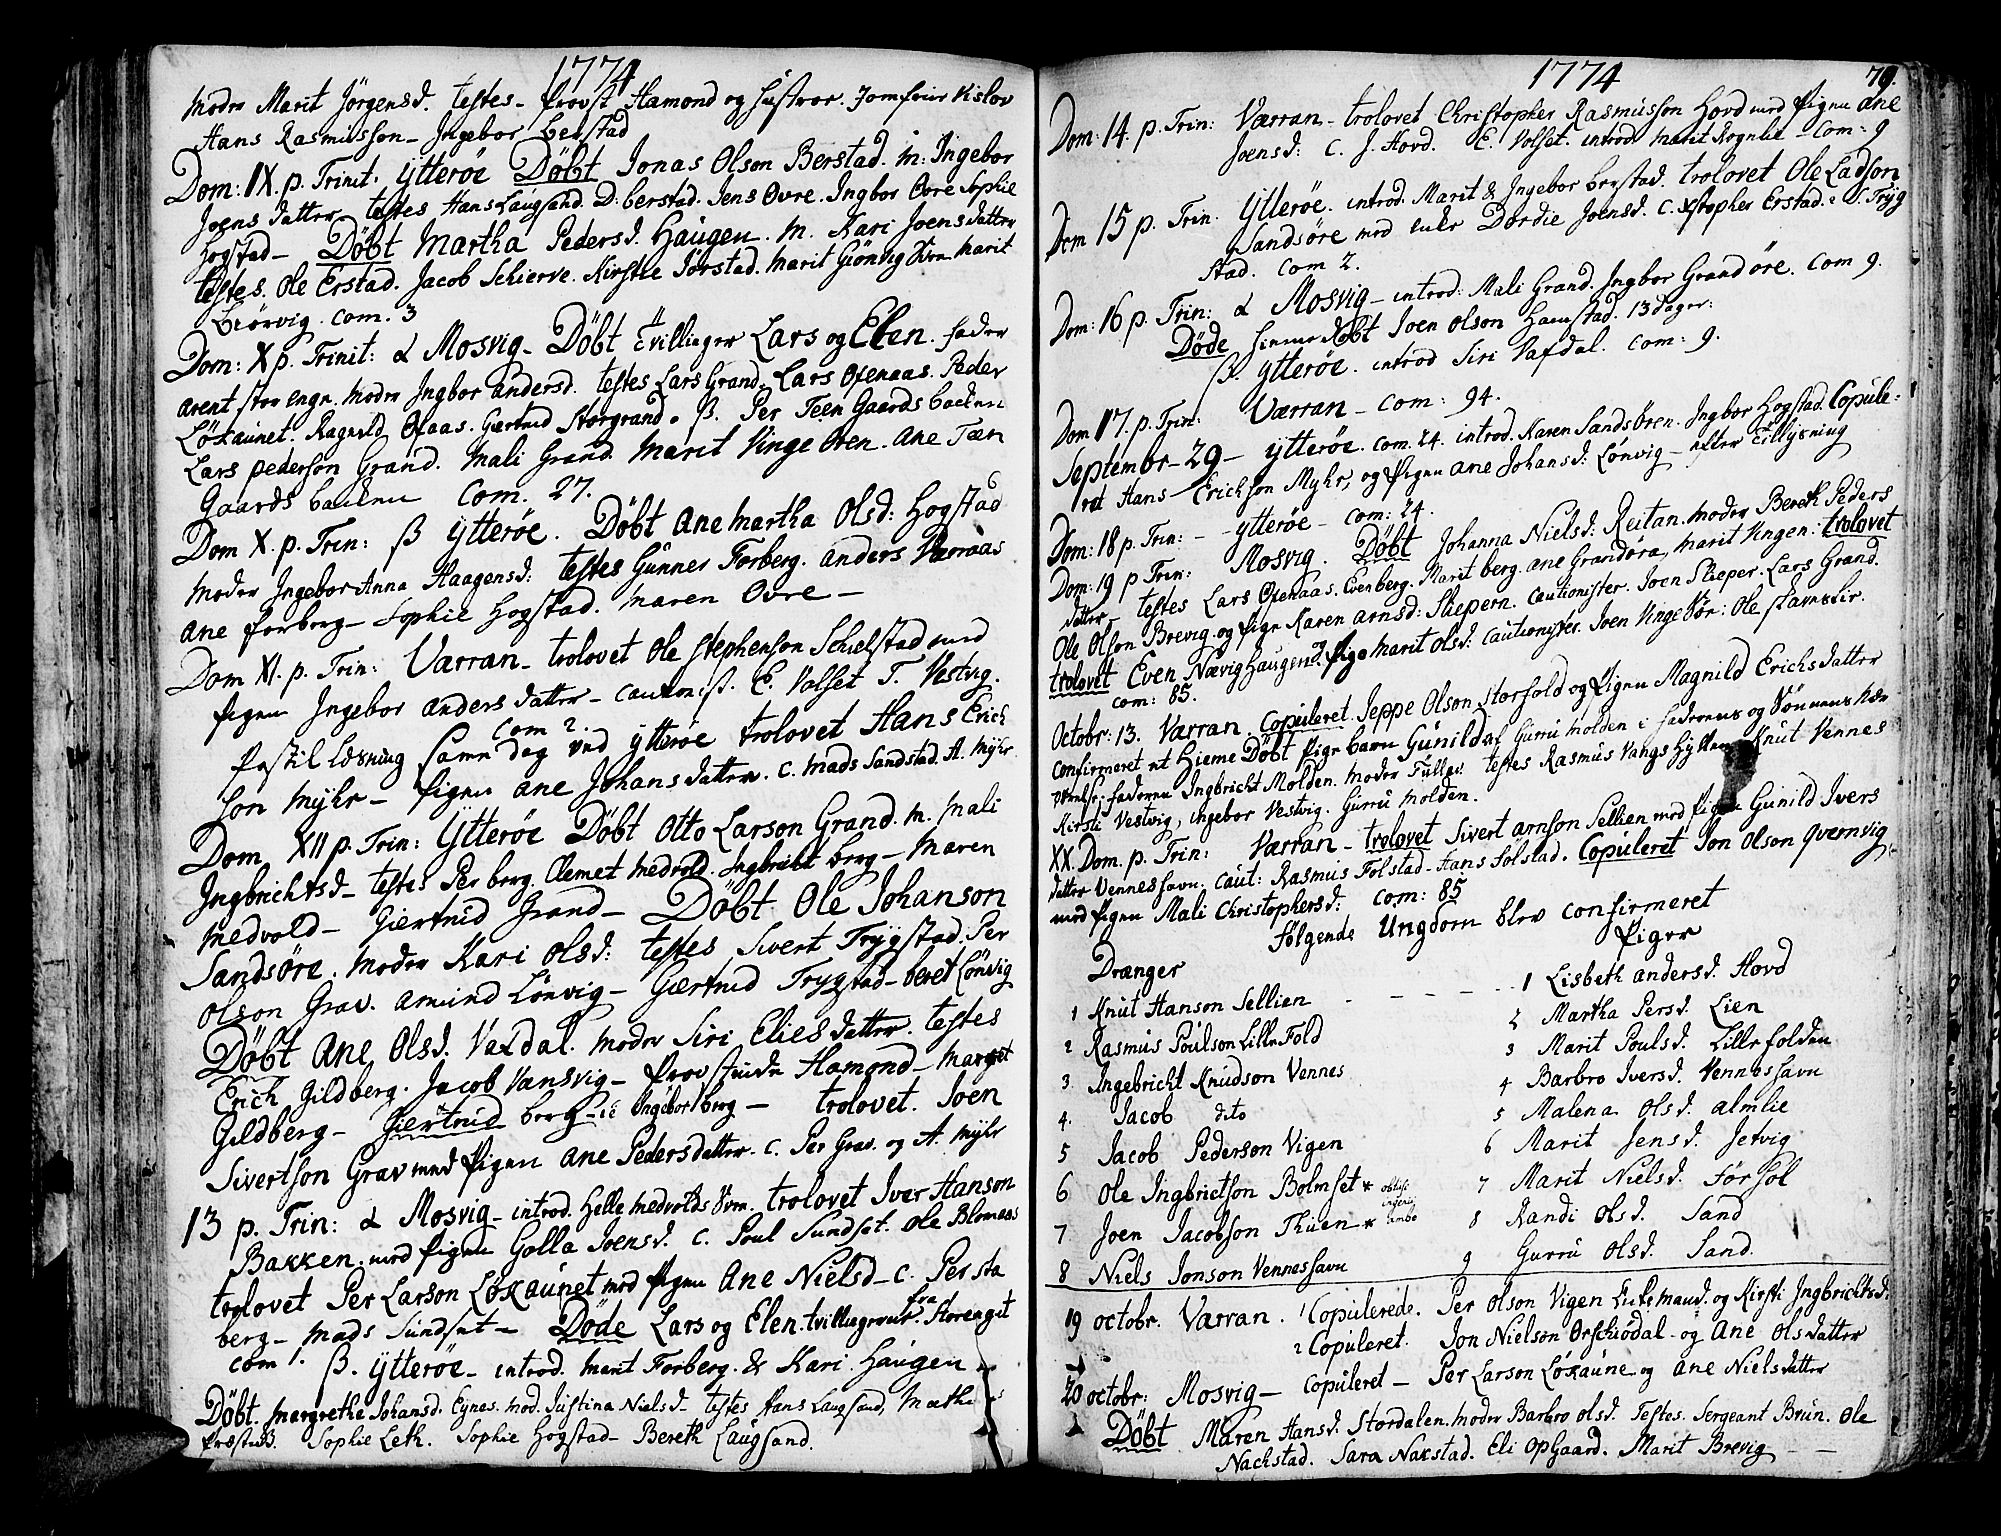 1774
Moder Marit Jörgensd. testes - Provst Hamond og hustroe. Jomfrue Kislov
Hans Rasmusson - Ingebor Berstad
Dom: IX. p. Trinit. Ytteröe Döbt Jonas Olson Berstad. M: Ingebor
Joens datter testes Hans Laugsand. D. Berstad. Jens Øvre. Ingbor Øvre Sophie
Hogstad - Döbt Martha Pedersd. Haugen. M. Kari Joensdatter
testes. Ole Erstad. Jacob Schierve. Kirstie Jörstad. Marit Giönvig Marit
com. 3
Dom: X p. Trinit: α Mosvig - Döbt tvillinger Lars og Elen. fader
arent stor engn. Moder Ingbor andersd. testes Lars Grand. Lars Oxenaas. Peder
Löxaunet. Ragnild Oxaas. Giertrud Storgrand. β. Per Teen Gaards backen
Lars pederson Grand. Mali Grand Marit Vinge Ören. Ane Teen
Gaards backen Com. 27.
Dom X. p. Trin: β Ytteröe. Döbt Ane Martha Olsd: Hogstad
Moder Ingebor Anna Haagensd: testes Gunner Forberg. anders Værraas
Ane forberg - Sophie Hogstad. Maren Øvre -
Dom XI. p. Trin: Værran - trolovet Ole Stephenson Schielstad med
Pigen Ingebor anders datter - cautionist. E. Volset T. Vestvig.
Com 2.
Postil læsning Samme dag ved Ytteröe trolovet Hans Erich
son Myhr - Pigen Ane Johans datter. C. Mads Sandstad. A. Myhr
Dom XII p. Trin: Ytteröe Döbt Otto Larson Grand. M. Mali
Ingbrichtsd - testes Per berg Clemet Medvold. Ingbricht berg - Maren
Medvold - Giertrud Grand - Döbt Ole Johanson
Sandsöre. Moder Kari Olsd: testes Sivert Trygstad. Per
Olson Grav. Amund Lönvig - Giertrud Trygstad - beret Lönvig
Döbt Ane Olsd. Vaxdal. Moder Siri Elies datter. testes
Erich Gildberg. Jacob Vansvig - Provstinde Hamond - Marget
Gildberg - Giertrud berg - Ingebor berg - trolovet. Joen
Sivertson Grav med Pigen Ane Pedersdatter. C. Per Grav. og A. Myhr
13 p. Trin: α Mosvig - introd. Helle Medvolds Övre. trolovet Iver Hanson
Bakken. med Pigen Golla Joensd. C. Poul Sundset. Ole Blomaas
trolovet Per Larson Löxaunet med Pigen Ane Nielsd - C. Per sta
berg - Mads Sundset - Döde Lars og Elen. tvillinger fra Storenget
com 1. β. Ytteröe - introd. Marit Forberg. & Kari. Haugen
Döbt. Margrethe Johansd. Eynes. mod. Justina Nielsd - testes Hans Laugsand, Marthe
Sophie Leth. Sophie Hogstad - Bereth Laugsand.
1774
79.
Dom: 14. p. Trin: Værran - trolovet Christopher Rasmusson Hovd med Pigen Ane
Joensd: C. J. Hovd. E. Volset. introd Marit Rognlie - Com: 9
Dom 15 p. Trin: Ytteröe. introd. Marit & Ingebor berstad. trolovet Ole Ladson
Sandsöre med enke Dordie Joensd. C. Xstopher Erstad. S. Tryg
stad. Com 2.
Dom: 16 p. Trin: α Mosvig - introd: Mali Grand. Ingbor Grandöre. Com 9.
Döde hieme Döbt Joen Olson Hamstad. 13 dager:
β. Ytteröe. introd Siri Vaxdal. Com: 9.
Dom 17. p. Trin: Værran - Com: 94.
Septembr - 29 - Ytteröe. com. 24. introd. Karen Sandsören. Ingbor Hogstad. Copule-
ret Hans - Erichson Myhr, og Pigen Ane Johansd: Lönvig - efter tillysning
Dom: 18 p. Trin: - - Ytteröe - Com: 24.
Dom: 19 p Trin: Mosvig. Döbt Johanna Nielsd: Reitan. Moder Bereth Peders
datter - testes Lars Oxenaas. Even berg. Marit berg. Ane Grandöra, Marit Vngen: trolovet
Ole Olson Brevig. og Pige Karen Arnsd: Skepern. Cautionister. Joen Skieper. Lars Grand.
trolovet Even Nævighaugen? Pige Marit Olsd: Cautionister. Joen Vinge Sör: Ole Stamslir.
com: 85.
Octobr: 13. Værran Copuleret. Jeppe Olson Storfold og Pigen Magnild Erichsdatter
Confirmeret et Hieme Döbt Pige barn Gunild af Gurru Molden i faderens og Sönnens nær
værelse: faderen Ingbricht Molden. Moder testes Rasmus Vangs Hytten Knut Vennes
Kirsti Vestvig, Ingebor Vestvig. Gurru Molden.
XX. Dom. p. Trin: Værran - trolovet Sivert Arnson Sellien med Pigen Gunild Ivers
datter Venneshavn. caut: Rasmus Folstad - Hans Solstad. Copuleret Jon Olson Qvernvig
med Pigen Mali Christophersd: Com: 85
Følgende Ungdom blev confirmeret
Drænger Piger
1 Knut Hanson Sellien - - - - - 1 Lisbeth Andersd. Hovd
2 Rasmus Poulson Lille Fold 2 Martha Persd. Lien
3 Ingebricht Knudson Vennes 3 Marit Poulsd. Lillefolden
4. Jacob dito 4 Barbro Iversd. Venneshavn
5 Jacob Pederson Vigen 5 Malena Olsd. Almlie
6 Ole Ingbrictson Bolmset * 6 Marit Jensd. Jetvig
7 Joen Jacobson Thuen * ambo 7 Marit Nielsd. Försöl
8 Niels Jonson Venneshavn 8 Randi Olsd. Sand
9 Gurru Olsd. Sand.
19 octobr. Værran. 1 Copulerede. Per Olson Vigen Enkemand. og Kirsti Ingbrichtsd:
2 Copuleret. Jon Nielson Örschiödal - og Ane Olsdatter
20 octobr: Mosvig - Copuleret - Per Larson Löxaune og Ane Nielsdatter
Döbt Maren Hansd. Stordalen. Moder Barbro Olsd. Testes. Sergeant Brun. Ole
Nachstad. Sara Naxstad. Eli Opgaard. Marit Brevig - -